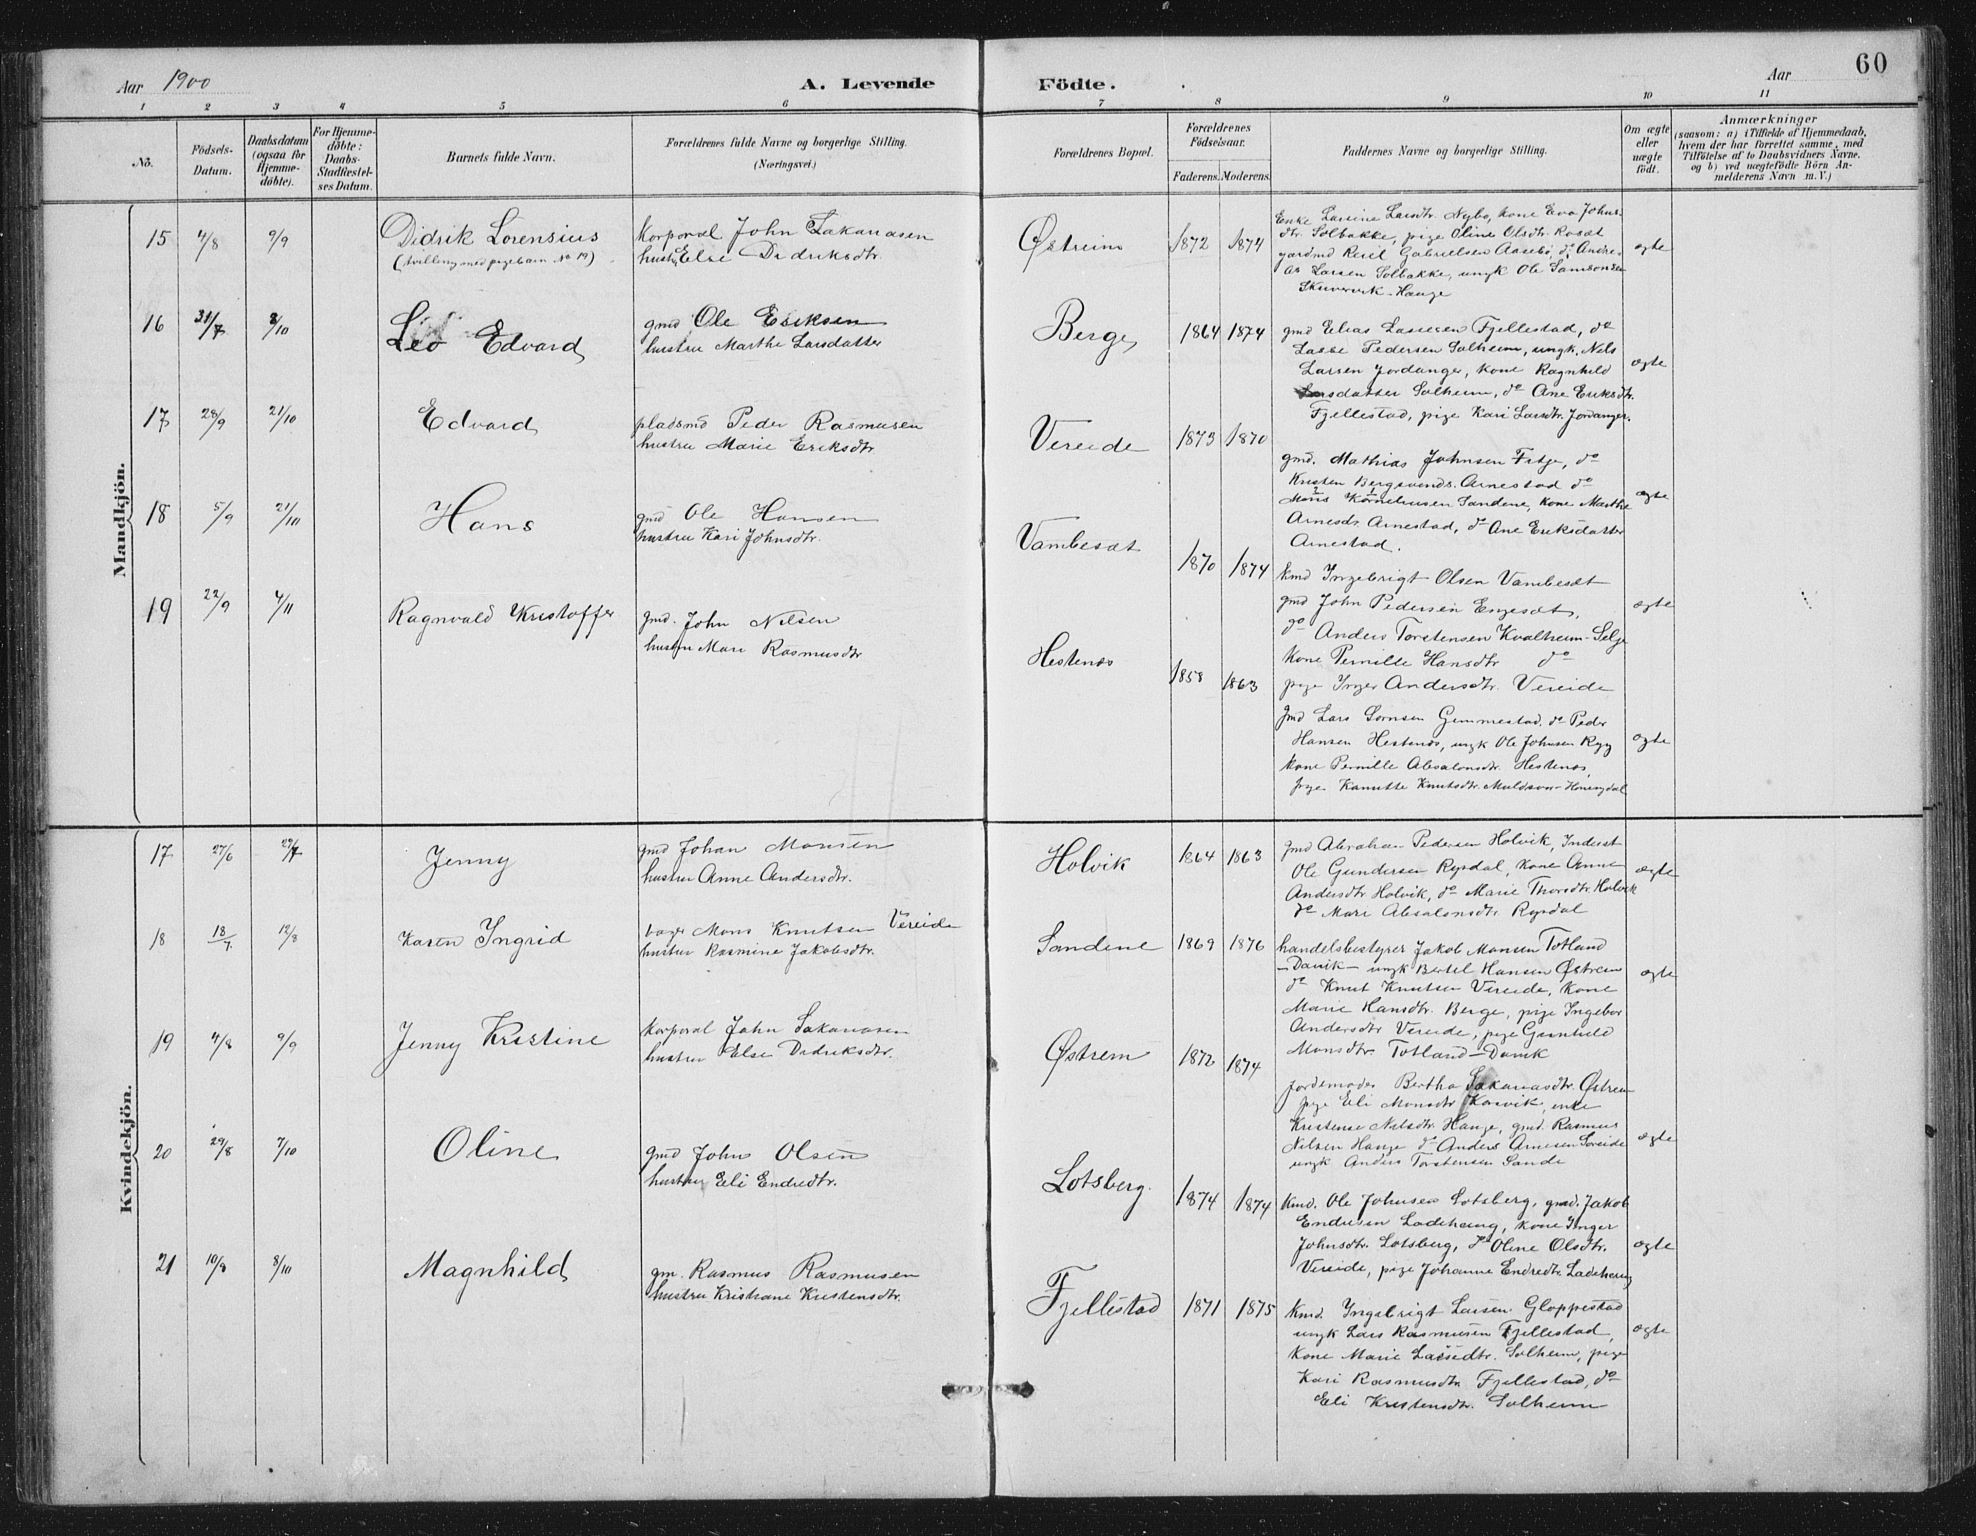 Aar 1900
A. Levende
Födte.
Aar
60
1 2 3 4 5 6 7 8 9 10 11
No.
Födsels-
Datum.
Daabsdatum
(ogsaa for
Hjemme-
döbte).
For Hjemme-
döbte:
Daabs-
Stadfæstel-
ses Datum.
Barnets fulde Navn.
Forældrenes fulde Navne og borgerlige Stilling.
(Næringsvei.)
Forældrenes Bopæl.
Forældrenes
Födselsaar.
Faderens. Moderens.
Faddernes Navne og borgerlige Stilling.
Om ægte
eller
uægte
födt.
Anmærkninger
(saasom: a) i Tilfælde af Hjemmedaab,
hvem der har forrettet samme, med
Tilföielse af to Daabsvidners Navne.
og b) ved uægtefödte Börn An-
melderens Navn m. V.)
Mandkjön.
15 4/8 9/9
Didrik Lorensius
(tvilling med pigebarn No 19)
Korporal John Sakariasen
hustru Else Didriksdtr.
Østreim 1872 1874
Enke Larsine Larsdtr. Nybø, kone Eva Johns-
dtr. Solbakke, pige Oline Olsdtr. Rosæt
gardmd Reiel Gabrielsen Aasebø, do Andre-
as Larsen Solbakke, ungk Ole Samsonsen
Skuvervik-Hauge
ægte
16 31/7 8/10
Leo Edvard
gmd Ole Eriksen
hustru Marthe Larsdatter
Berge 1864 1874
gmd Elias Lassesen Fjellestad, do
Lasse Pedersen Solheim, ungk. Nils
Larsen Jordanger, kone Ragnhild
Larsdatter Solheim, do Ane Eriksdtr.
Fjellestad, pige Kari Larsdtr. Jordanger.
ægte
17 28/9 21/10
Edvard
pladsmd Peder Rasmusen
hustru Marie Eriksdtr.
Vereide 1873 1870
gmd. Mathias Johnsen Fitje, do
Kristen Bergsvends. Arnestad do
Mons Korneliusen Sandene, kone Marthe
Arnesdr Arnestad, do Ane Eriksdatter
Arnestad.
ægte
18 5/9 21/10
Hans
gmd Ole Hansen
hustru Kari Johnsdtr.
Vambesæt 1870 1874
kmd Ingebrigt Olsen Vambesæt
gmd John Pedersen Engesæt,
do Anders Torstensen Kvalheim-Selje
kone Pernille Hansdtr do
pige Inger Andersdtr. Vereide
ægte
19 22/9 4/11
Ragnvald Kristoffer
gmd. John Nilsen
hustru Mari Rasmusdtr
Hestenes 1858 1863
Gmd Lars Sørnsen Gemmestad. do Peder
Hansen Hestenes, ungk Ole Johnsen Ryg
kone Pernille Absalonsdtr. Hestenes,
pige Kanutte Knutsdtr. Muldsvor-Hornindal
ægte
Kvindekjön.
17 27/6 29/7
Jenny
gmd Johan Monsen
hustru Anne Andersdtr.
Holvik 1864 1863
gmd Abraham Pedersen Holvik, Inderst
Ole Gundersen Rysdal, kone Anne
Andersdtr Holvik, do Marie Thorsdtr. Holvik
do Mari Absalonsdtr Rysdal
ægte
18 18/7. 12/8
Karen Ingrid
bager Mons Knutsen Vereide
hustru Rasmine Jakobsdtr.
Sandene 1869 1876
handelsbestyrer Jakob Monsen Totland
-Davik- ungk Bertel Hansen Østrem
do Knut Knutsen Vereide, kone
Marie Hansdtr. Berge, pige Ingebor
Andersdtr Vereide, pige Gunhild
Monsdtr Totland-Davik
ægte
19 4/8 9/9
Jenny Kristine
Korporal John Sakariasen
hustru Else Didriksdtr.
Østrem 1872 1874
Jordemoder Bertha Sakariasdtr. Østrem
pige Eli Monsdtr Karvik, enke
Kristense Nilsdtr Hauge, gmd. Rasmus
Nilsen Hauge do Anders Arnesen Soreide
ungk Anders Torstensen Sande
ægte
20 29/8 7/10
Oline
gmd John Olsen
hustru Eli Endredtr.
Lotsberg. 1874 1874
Kmd. Ole Johnsen Lotsberg, gmd. Jakob
Endresen Ladehaug, kone Inger
Johnsdtr. Lotsberg, do Oline Olsdtr.
Vereide, pige Johanne Endredtr. Ladehaug
ægte
21 10/9 8/10
Magnhild
gm. Rasmus Rasmusen
hustru Kristiane Kristensdtr.
Fjellestad 1871 1875
Kmd. Ingebrigt Larsen Gloppestad
ungk Lars Rasmusen Fjellestad,
kone Marie Lassedtr. Solheim, pige
Kari Rasmusdtr Fjellestad, do
Eli Kristensdtr. Solheim
ægte